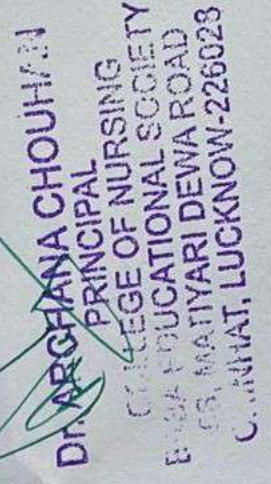 Dr. ARCHANA CHOUHAN
PRINCIPAL
COLLEGE OF NURSING
EDUCATIONAL SOCIETY
MATIYARI DEWA ROAD
LUCKNOW-226028